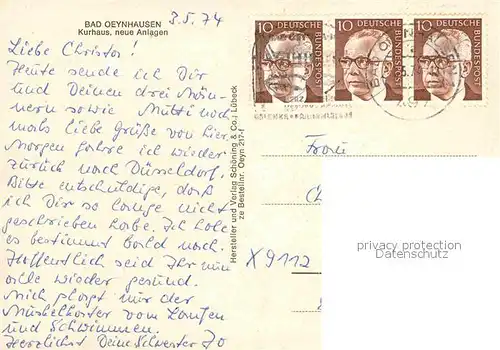 BAD OEYNHAUSEN
Kurhaus, neue Anlagen
3.5.74
Liebe Christos!
Heute sende ich Dir
und Deinen drei Män-
nern sowie Mutti noch
mals liebe Grüße von hier.
Morgen fahre ich wieder
zurück nach Düsseldorf.
Bitte entschuldige, daß
ich Dir so lange nicht
geschrieben habe. Ich hole
es bestimmt bald nach.
Hoffentlich seid Ihr nun
alle wieder gesund.
Mich plagt nur der
Muskelkater vom Laufen
und Schwimmen.
Herzlichst Deine Schwester Jo
Hersteller und Verlag Schöning & Co., Lübeck
ze Bestellnr. Oeyn 217-f
10 DEUTSCHE BUNDESPOST
10 DEUTSCHE BUNDESPOST
10 DEUTSCHE BUNDESPOST
Frau
X 9112
privacy protection
Datenschutz